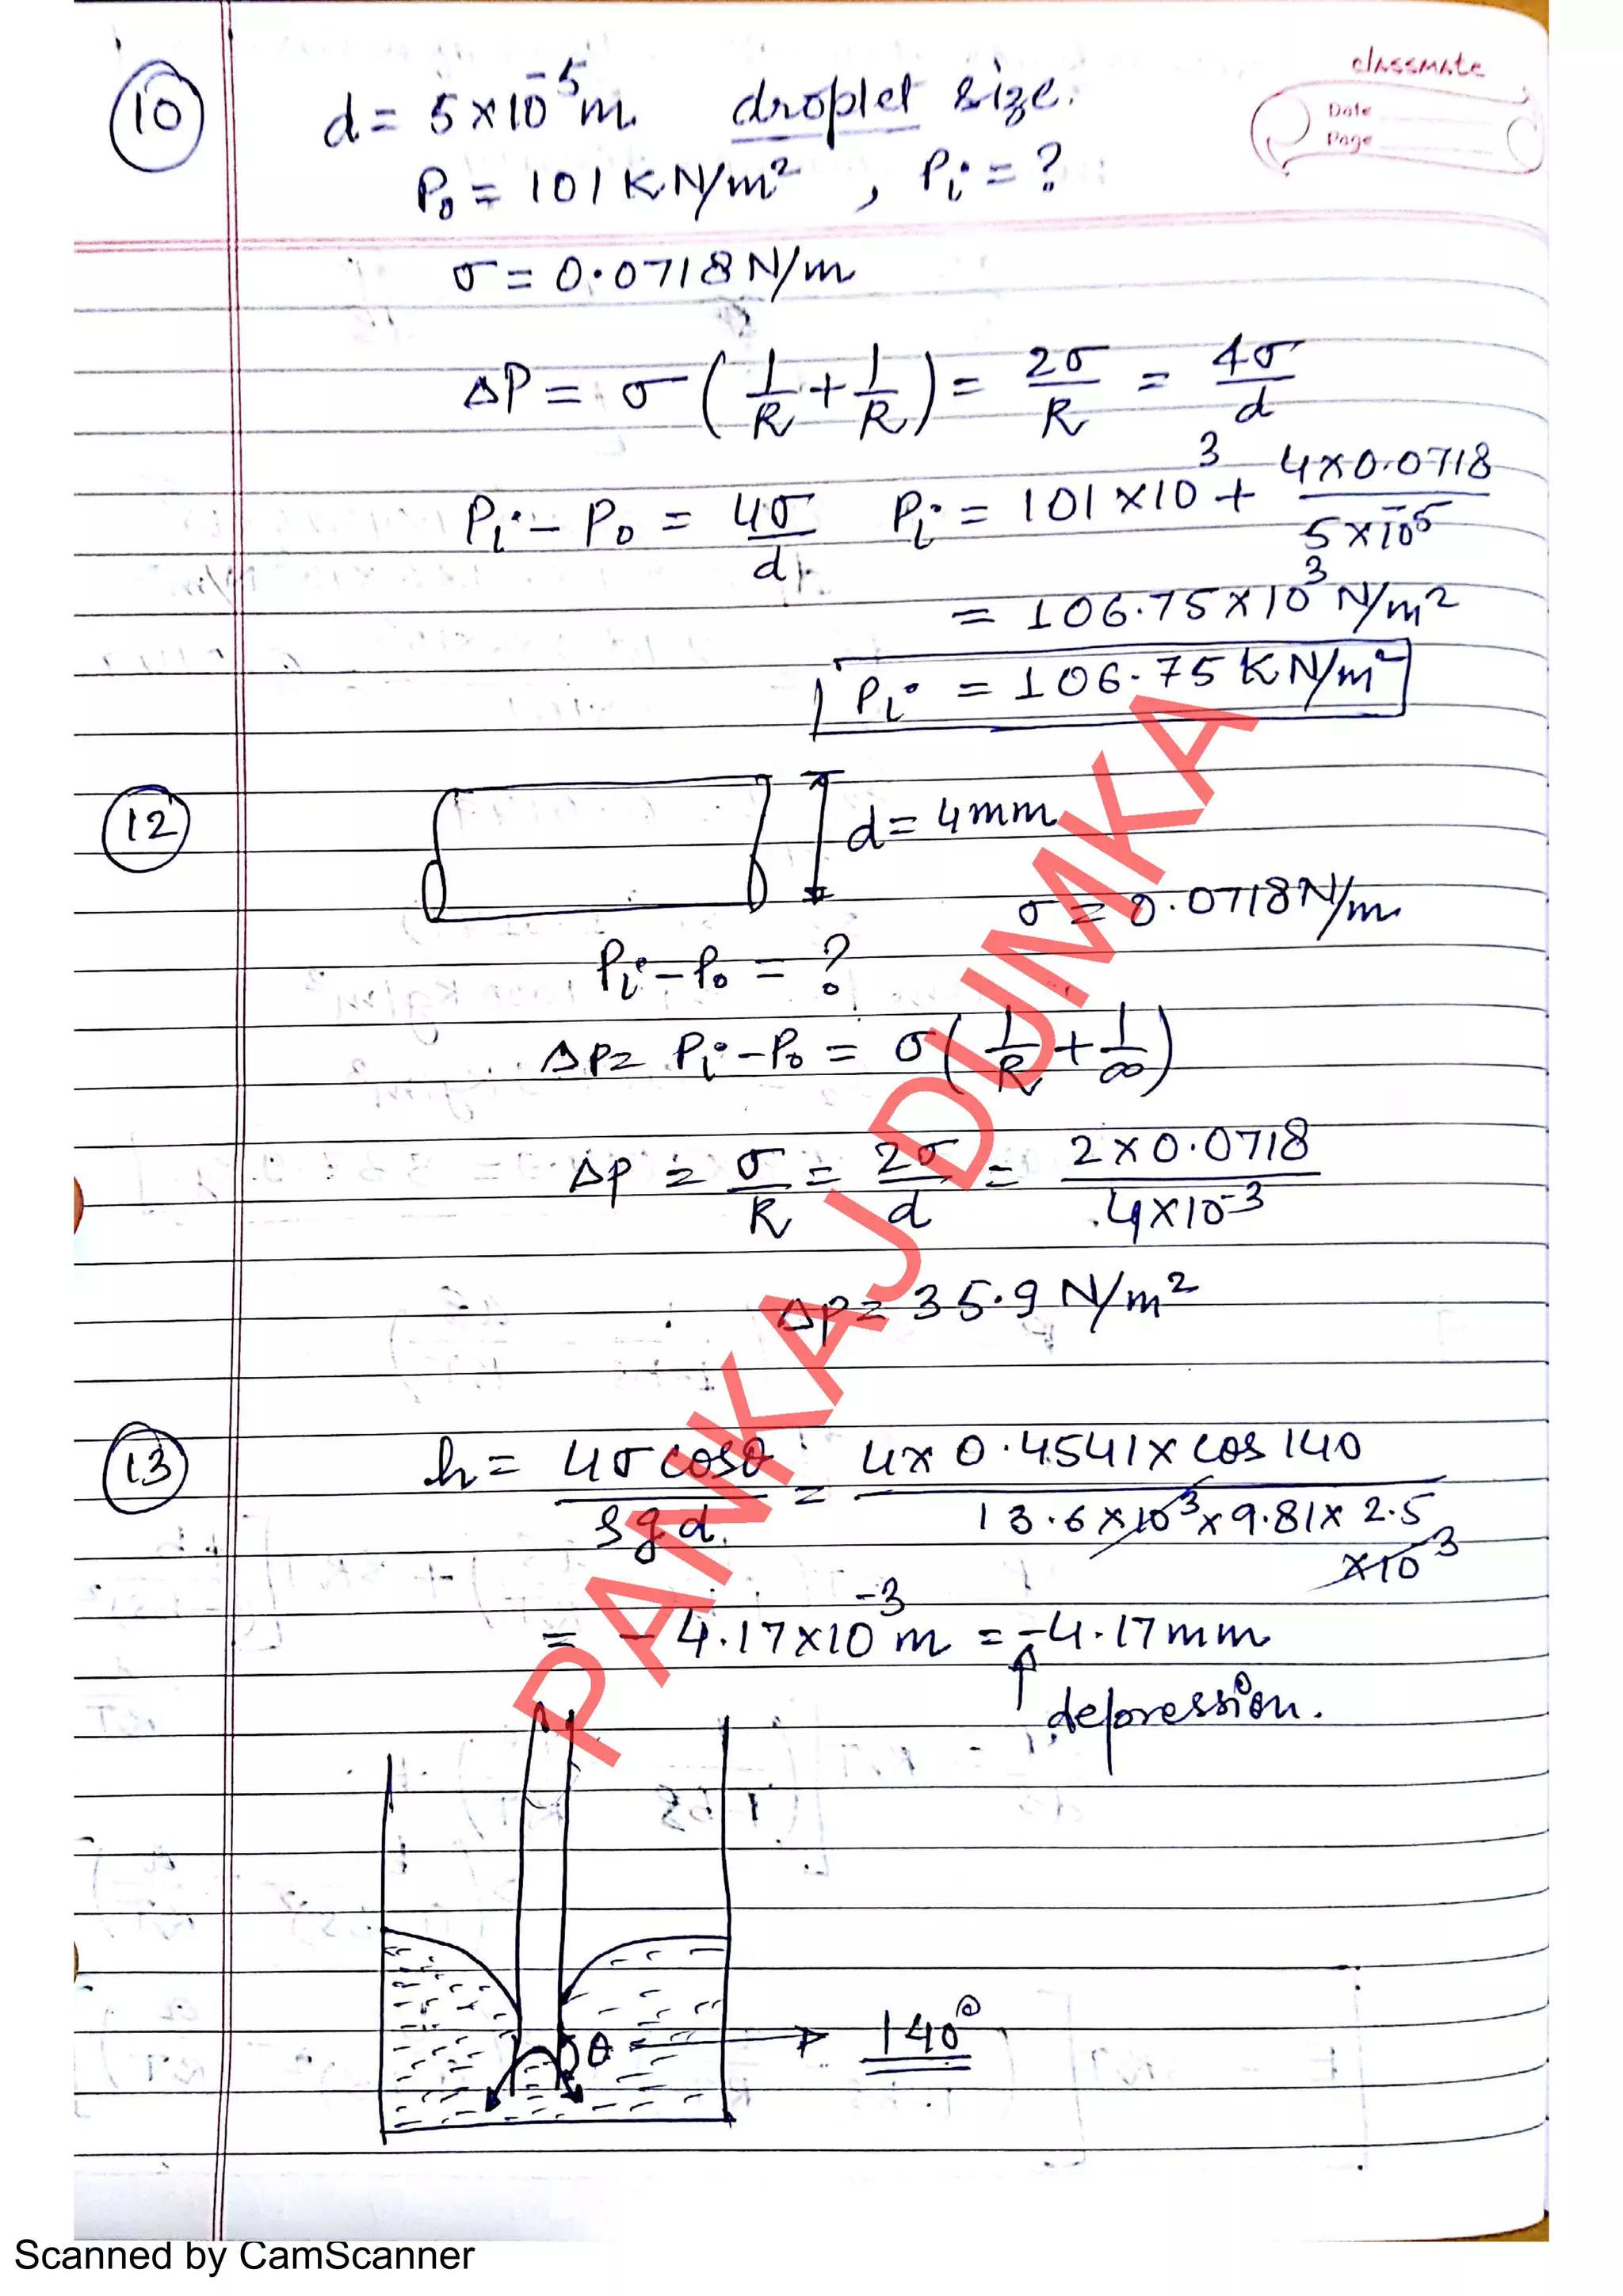 classmate
Date
Page
10
d = 5×10⁻⁵m droplet size.
P₀ = 101 KN/m² , Pᵢ = ?
σ = 0.0718 N/m
ΔP = σ (1/R + 1/R) = 2σ/R = 4σ/d
Pᵢ - P₀ = 4σ/d Pᵢ = 101×10³ + 4×0.0718/5×10⁻⁵
= 106.75×10³ N/m²
Pᵢ = 106.75 KN/m²
12
d = 4mm
σ = 0.0718 N/m
Pᵢ - P₀ = ?
ΔP = Pᵢ - P₀ = σ (1/R + 1/∞)
ΔP = σ/R = 2σ/d = 2×0.0718/4×10⁻³
ΔP = 35.9 N/m²
13
h = 4σ cosθ/ρgd = 4×0.4541×cos140/13.6×10³×9.81×2.5×10⁻³
= -4.17×10⁻³ m = -4.17mm
↑ depression.
θ → 140°
PANKAJ DUMKA
Scanned by CamScanner